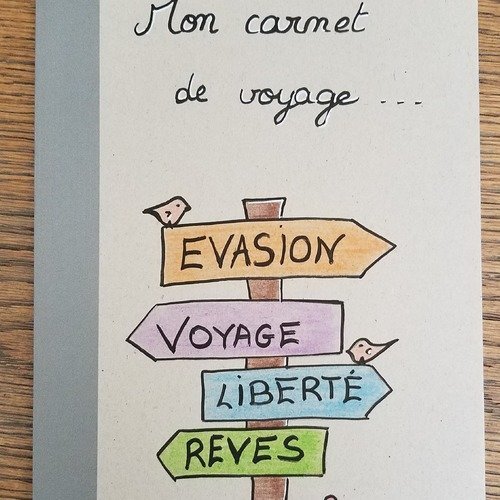 Mon carnet
de voyage ...
EVASION
VOYAGE
LIBERTÉ
REVES